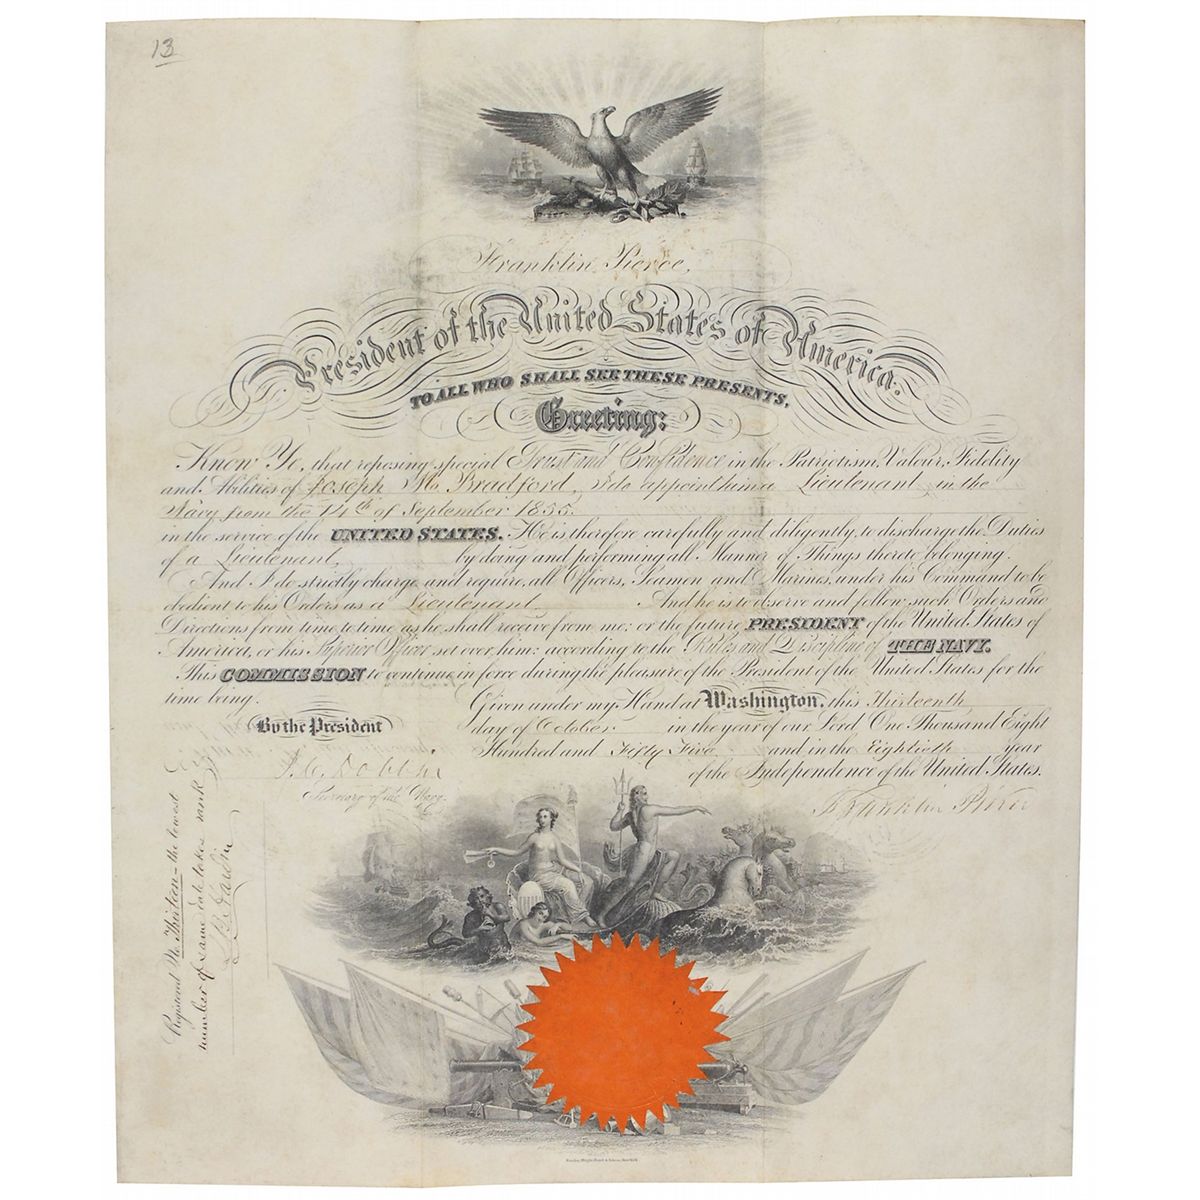 13
Franklin Pierce,
President of the United States of America.
TO ALL WHO SHALL SEE THESE PRESENTS,
Greeting:
Know Ye, that reposing special Trust and Confidence in the Patriotism, Valour, Fidelity
and Abilities of Joseph M. Bradford, I do appoint him a Lieutenant in the
Navy from the 14th of September 1855.
in the service of the UNITED STATES. He is therefore carefully and diligently to discharge the Duties
of a Lieutenant, by doing and performing all Manner of Things thereto belonging.
And I do strictly charge and require all Officers, Seamen and Marines, under his Command to be
obedient to his Orders as a Lieutenant. And he is to observe and follow such Orders and
Directions from time to time as he shall receive from me: or the future PRESIDENT of the United States of
America, or his Superior Officer set over him: according to the Rules and Discipline of THE NAVY.
This COMMISSION to continue in force during the pleasure of the President of the United States for the
time being.
Given under my Hand at Washington, this Thirteenth
day of October in the year of our Lord One Thousand Eight
Hundred and Fifty Five and in the Eightieth year
of the Independence of the United States.
By the President
J. C. Dobbin
Secretary of the Navy.
Franklin Pierce
Registered No Thirteen – the lowest
number of same date takes rank